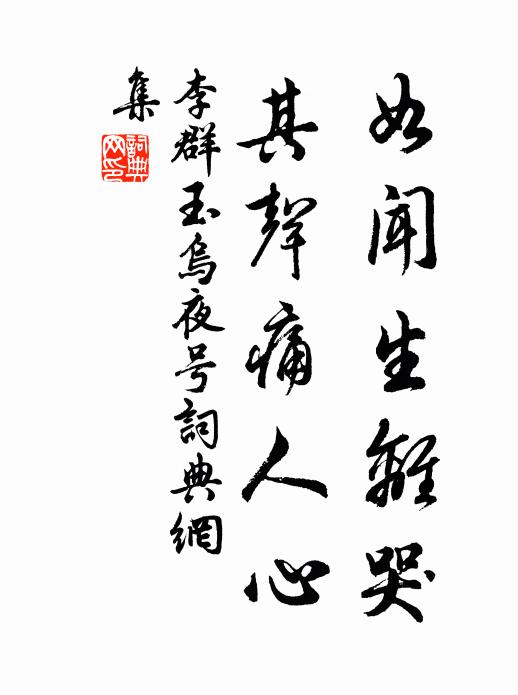 如聞生離哭
其聲痛人心
李群玉烏夜号詞典網
集
詞典網印